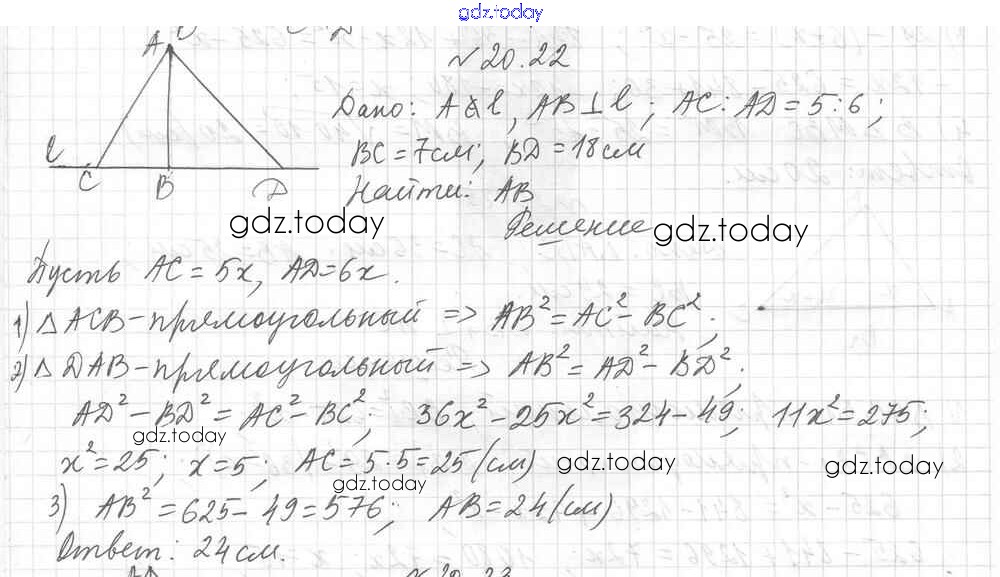 gdz.today
№ 20.22
A
Дано: A∉l, AB⊥l; AC:AD=5:6;
BC=7см; BD=18см
l C B D
Найти: AB
gdz.today
Решение gdz.today
Пусть AC=5x, AD=6x.
1) △ACB-прямоугольный => AB²=AC²-BC²;
2) △DAB-прямоугольный => AB²=AD²-BD²;
AD²-BD²=AC²-BC²; 36x²-25x²=324-49; 11x²=275;
gdz.today
x²=25; x=5; AC=5·5=25(см) gdz.today gdz.today
gdz.today
3) AB²=625-49=576; AB=24(см)
Ответ: 24см.